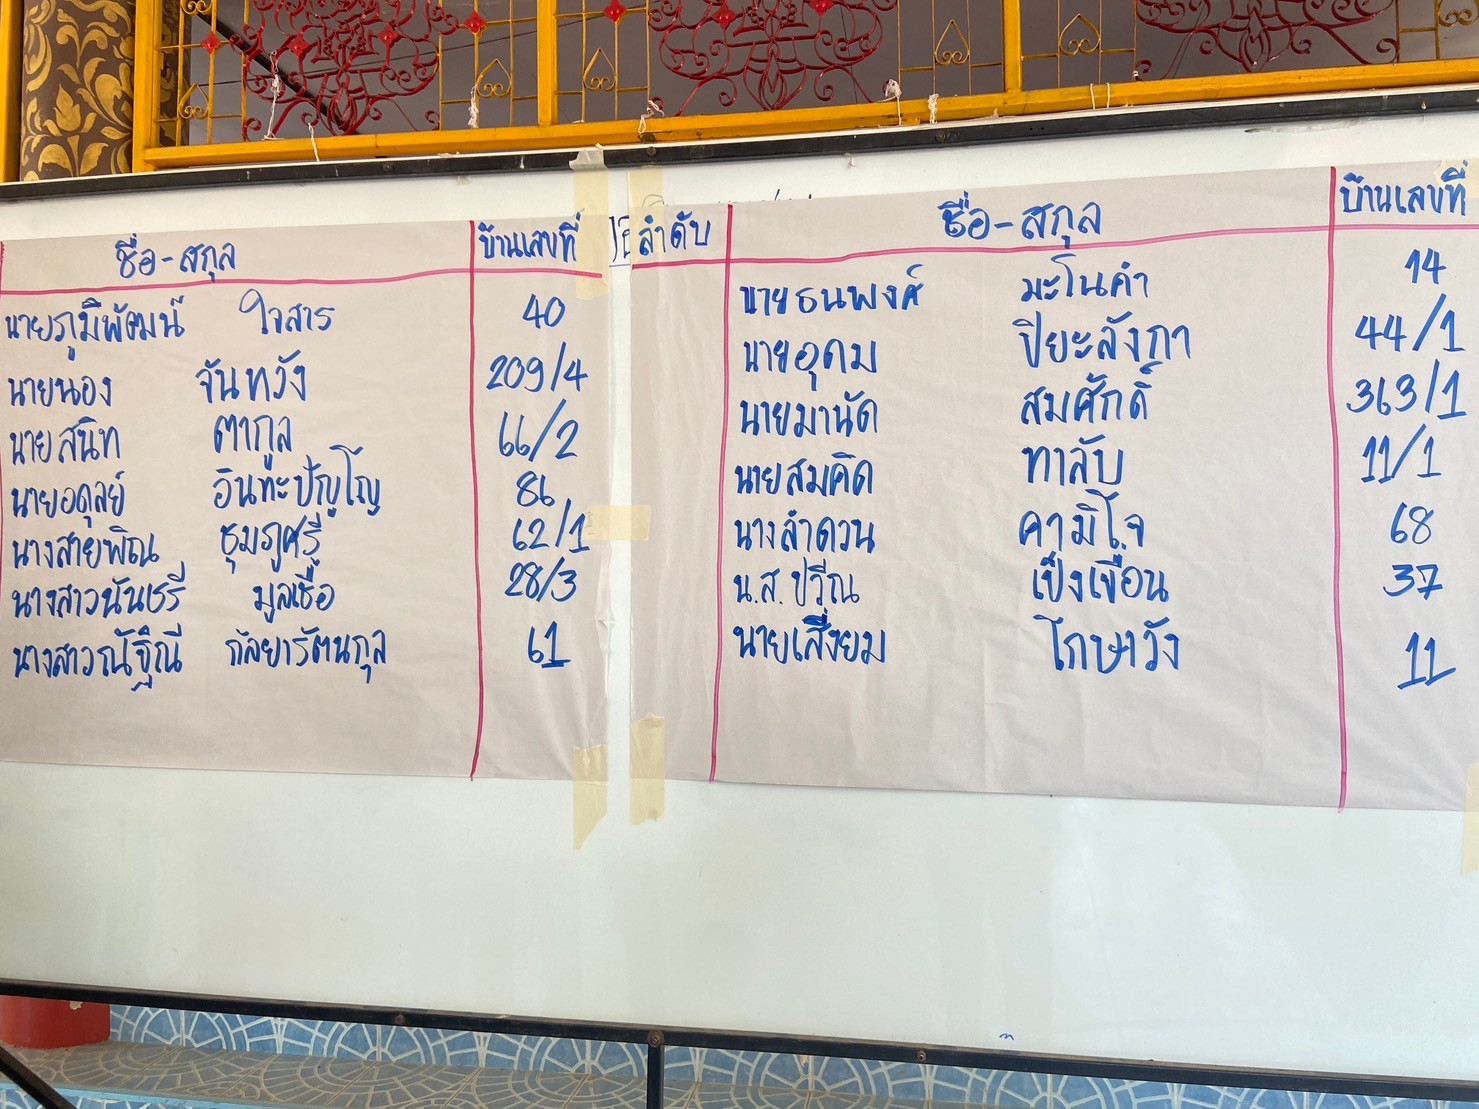 ชื่อ-สกุล บ้านเลขที่
นายภูมิพัฒน์ ใจสาร 40
นายนอง จันทวัง 209/4
นายสนิท ตากูล 66/2
นายอดุลย์ อินทะปัญโญ 86
นางสายพิณ ชุมภูศรี 62/1
นางสาวนันชรี มูลเชื้อ 28/3
นางสาวณัฐิณี กัลยารัตนกุล 61
ลำดับ ชื่อ-สกุล บ้านเลขที่
นายธนพงศ์ มะโนคำ 14
นายอุดม ปิยะลังกา 44/1
นายมานัด สมศักดิ์ 363/1
นายสมคิด ทาลับ 11/1
นางลำดวน คามิโจ 68
น.ส.ปวีณ เป็งเขื่อน 37
นายเสงี่ยม โกษาวัง 11